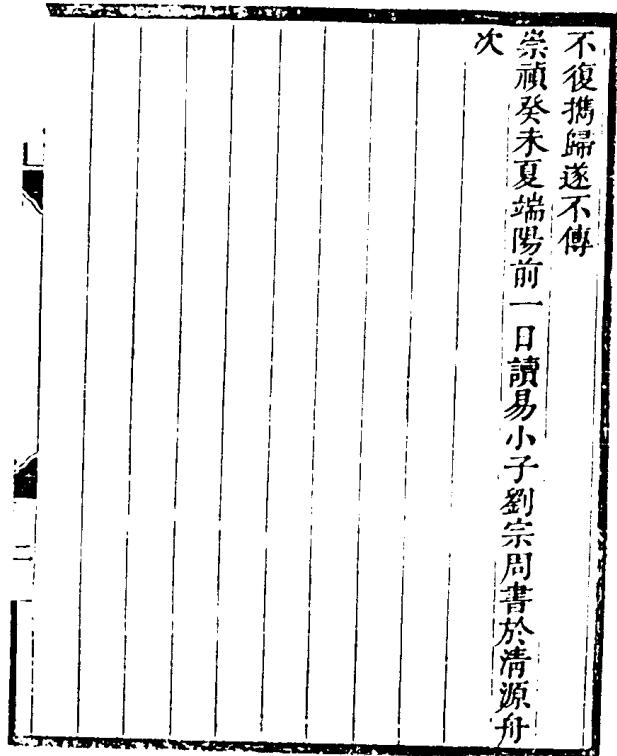 不復擕歸遂不傳
崇禎癸未夏端陽前一日讀易小子劉宗周書於淸源舟
次
二